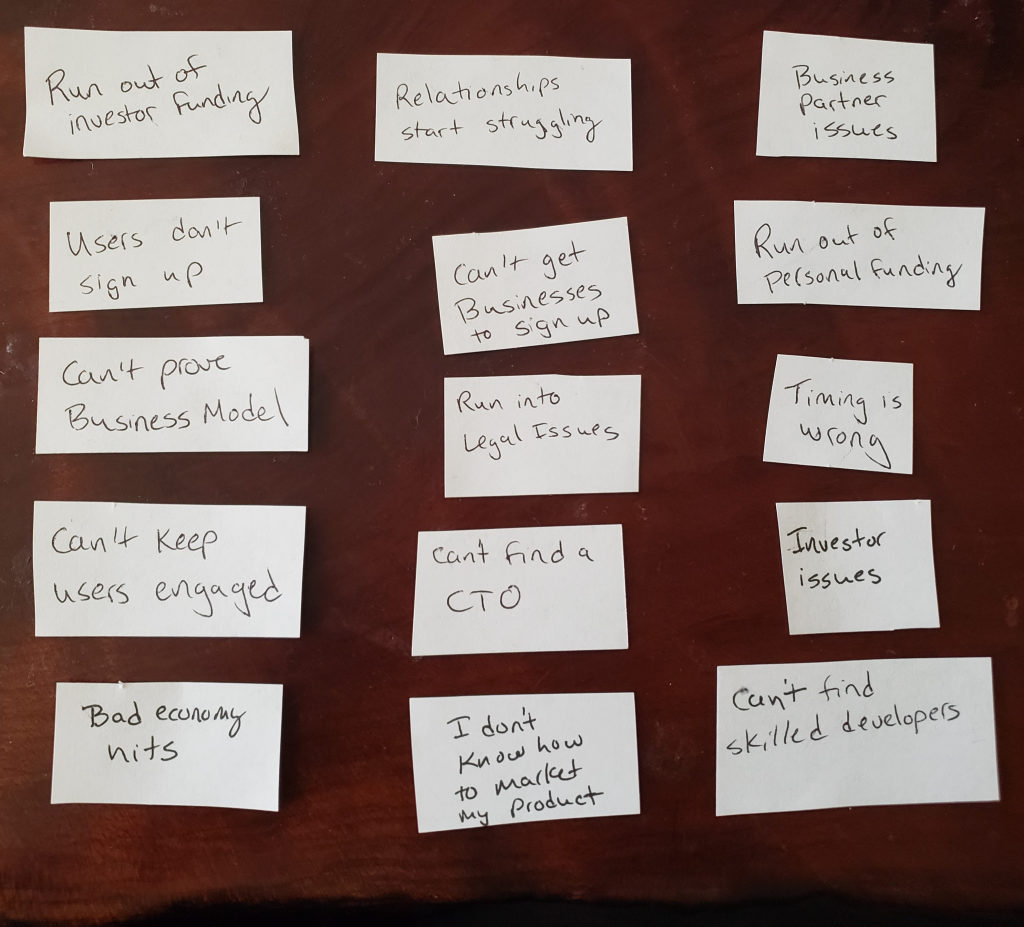 Run out of
investor funding
Relationships
start struggling
Business
partner
issues
Users don't
sign up
Can't get
Businesses
to sign up
Run out of
personal funding
Can't prove
Business Model
Run into
Legal Issues
Timing is
wrong
Can't keep
users engaged
Can't find a
CTO
Investor
issues
Bad economy
hits
I don't
know how
to market
my product
Can't find
skilled developers